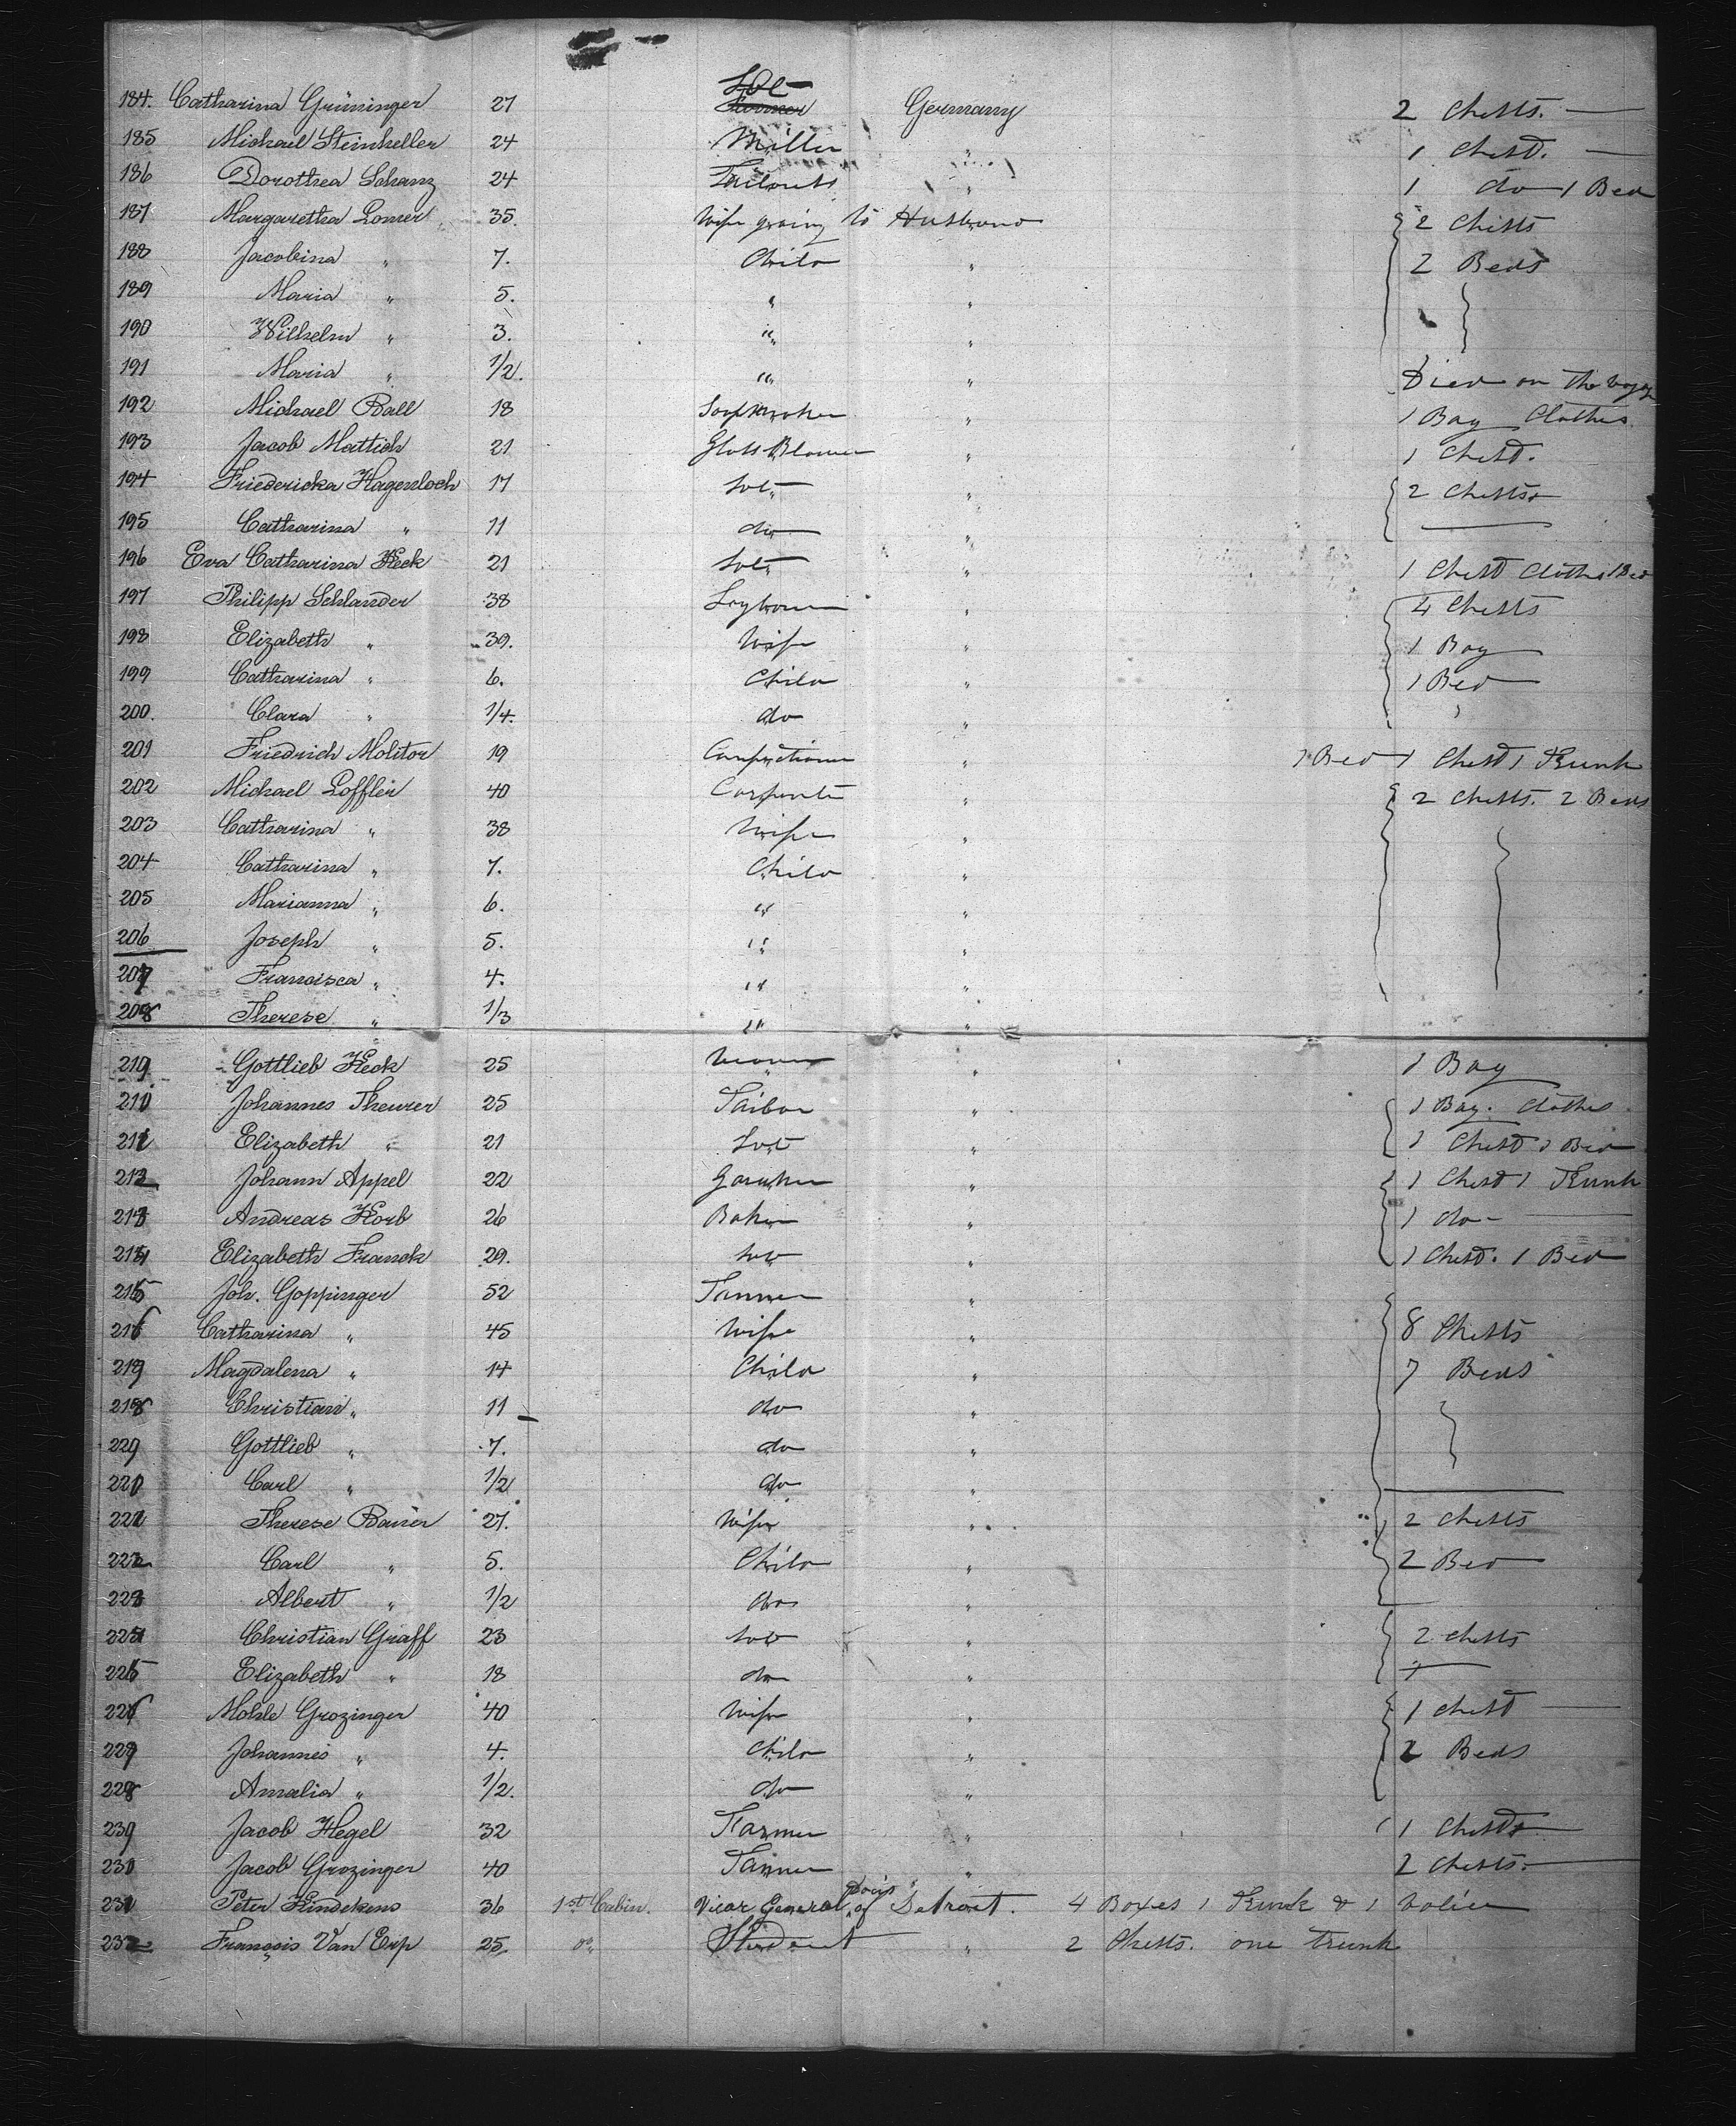 184. Catharina Grüninger 27 Sol Germany 2 Chests.
185 Michael Steinheller 24 Miller " 1 Chest.
186 Dorothea Schanz 24 " 1 do 1 Bed
187 Margaretha Lomer 35. Wife going to Husband 2 Chests
188 Jacobina " 7. Child " 2 Beds
189 Maria " 5. " "
190 Wilhelm " 3. " "
191 Maria " 1/2. " " Died on the voyage
192 Michael Ball 18 Soapmaker " 1 Bag Clothes
193 Jacob Mattich 21 Glass Blower " 1 Chest.
194 Friedericka Hagenloch 17 Sol " 2 Chests
195 Catharina " 11 do "
196 Eva Catharina Heck 21 Sol " 1 Chest Clothes 1 Bed
197 Philipp Schlander 38 " 4 Chests
198 Elizabeth " 39. Wife " 1 Bag
199 Catharina " 6. Child " 1 Bed
200. Clara " 1/4. do "
201 Friedrich Molitor 19 Confectioner " 1 Bed 1 Chest 1 Trunk
202 Michael Loffler 40 Carpenter " 2 Chests. 2 Beds
203 Catharina " 38 Wife "
204 Catharina " 7. Child "
205 Marianna " 6. " "
206 Joseph " 5. " "
207 Francisca " 4. " "
208 Therese " 1/3 " "
209 Gottlieb Heck 25 " 1 Bag
210 Johannes Theurer 25 Tailor " 1 Bag. Clothes
211 Elizabeth " 21 Sol " 1 Chest 1 Bed
212 Johann Appel 22 Gardner " 1 Chest 1 Trunk
213 Andreas Korb 26 Baker " 1 do
214 Elizabeth Franck 29. Sol " 1 Chest. 1 Bed
215 Joh. Goppinger 52 Tanner "
216 Catharina " 45 Wife " 8 Chests
217 Magdalena " 14 Child " 7 Beds
218 Christian " 11 do "
219 Gottlieb " 7. do "
220 Carl " 1/2 do "
221 Therese Baurer 27. Wife " 2 Chests
222 Carl " 5. Child " 2 Bed
223 Albert " 1/2 do "
224 Christian Graff 23 Sol " 2 Chests
225 Elizabeth " 18 do "
226 Grozinger 40 Wife " 1 Chest
227 Johannes " 4. Child " 2 Beds
228 Amalia " 1/2. do "
229 Jacob Hegel 32 Farmer " 1 Chest
230 Jacob Grozinger 40 Tanner " 2 Chests.
231 Peter Hindekens 36 1st Cabin. Vicar General of Detroit. 4 Boxes 1 Trunk & 1 valice
232 François Van Erp 25. do Student " 2 Chests. one trunk